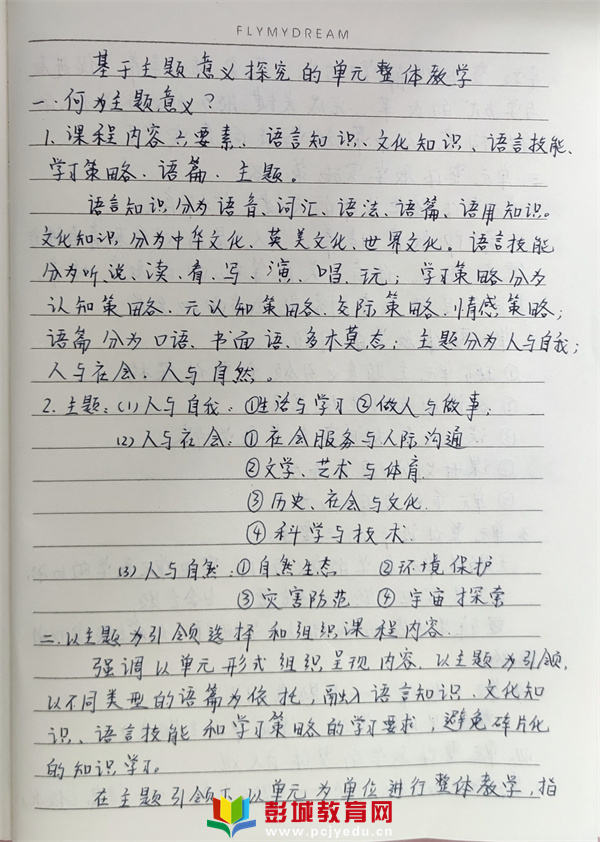 FLYMYDREAM
基于主题意义探究的单元整体教学
一.何为主题意义?
1.课程内容六要素、语言知识、文化知识、语言技能、
学习策略.语篇.主题。
语言知识分为语音、词汇、语法、语篇、语用知识。
文化知识分为中华文化、英美文化、世界文化。语言技能
分为听、说、读、看、写、演、唱、玩;学习策略分为
认知策略、元认知策略、交际策略、情感策略;
语篇分为口语、书面语、多术莫态;主题分为人与自我;
人与社会.人与自然。
2.主题:(1)人与自我:①生活与学习②做人与做事;
(2)人与社会:①社会服务与人际沟通
②文学、艺术与体育.
③历史、社会与文化.
④科学与技术.
(3)人与自然:①自然生态 ②环境保护
③灾害防范 ④宇宙探索
二.以主题为引领选择和组织课程内容.
强调以单元形式组织呈现内容.以主题为引领,
以不同类型的语篇为依托,融入语言知识、文化知
识、语言技能和学习策略的学习要求,避免碎片化
的知识学习。
在主题引领下以单元为单位进行整体教学,指
彭城教育网
www.pcjyedu.cn